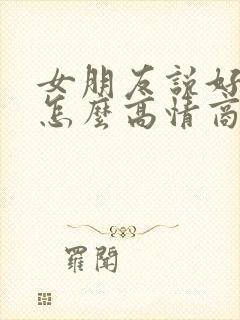 女朋友說好
怎麼高情商
羅聞